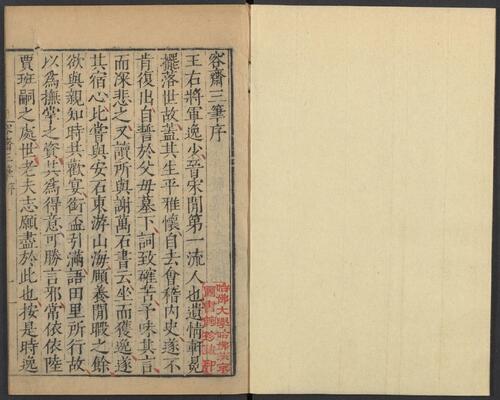 容齋三筆序
王右將軍逸少晉宋間第一流人也遺情軒冕
擺落世故蓋其生平雅懷自去會稽內史遂不
肯復出自誓於父母墓下詞致確苦予味其言
而深悲之又讀所與謝萬石書云坐而獲逸遂
其宿心比嘗與安石東游山海頤養閒暇之餘
欲與親知時共歡宴銜盃引滿語田里所行故
以爲撫掌之資其爲得意可勝言邪常依依陸
賈班嗣之處世老夫志願盡於此也按是時逸
容齋三筆序
哈佛大學哈佛燕京
圖書館珍藏印